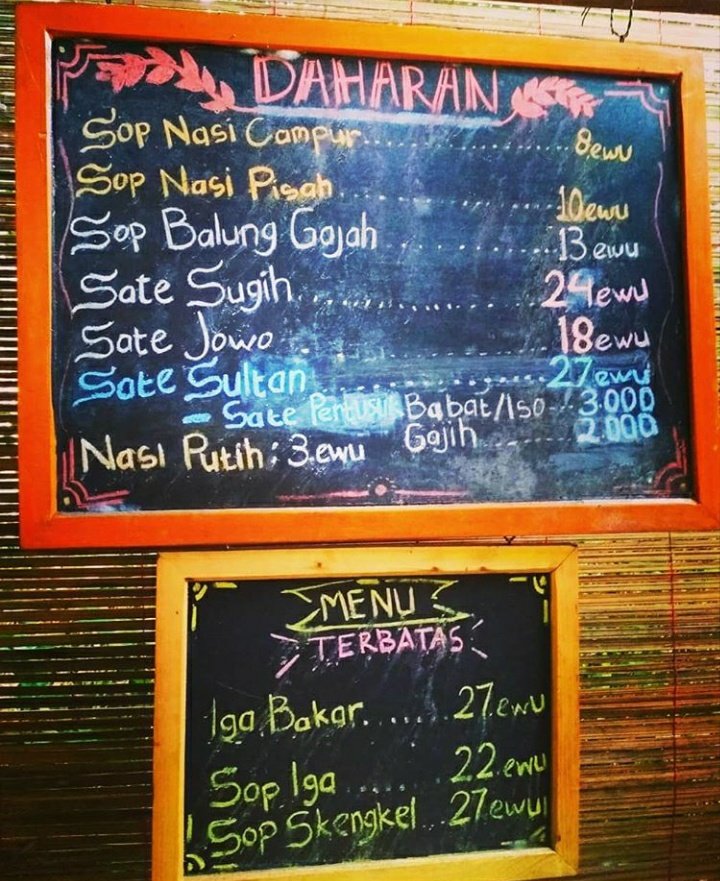 DAHARAN
Sop Nasi Campur.......................8ewu
Sop Nasi Pisah.......................10ewu
Sop Balung Gajah..............13ewu
Sate Sugih.......................24ewu
Sate Jowo.......................18ewu
Sate Sultan.......................27ewu
- Sate Pertusuk Babat/Iso...3.000
Gajih.........2.000
Nasi Putih: 3.ewu
MENU
TERBATAS
Iga Bakar......27ewu
Sop Iga.......22.ewu
Sop Skengkel..27ewu